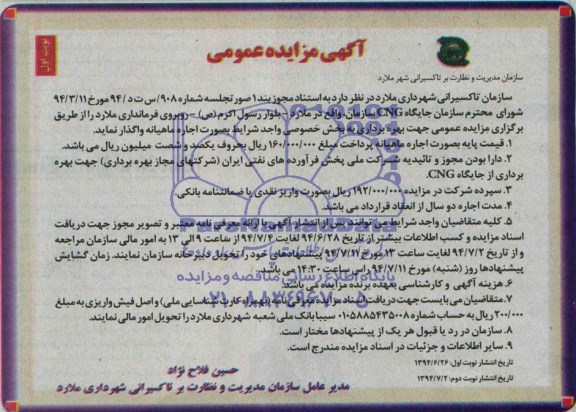 آگهی مزایده عمومی
نوبت اول
سازمان مدیریت و نظارت بر تاکسیرانی شهر ملارد
سازمان تاکسیرانی شهرداری ملارد در نظر دارد به استناد مجوز بند۱ صورتجلسه شماره ۹۰۸/س ت د/۹۴ مورخ ۹۴/۳/۱۱
شورای محترم سازمان جایگاه CNG سازمان واقع در ملارد - بلوار رسول اکرم (ص) - روبروی فرمانداری ملارد را از طریق
برگزاری مزایده عمومی جهت بهره برداری به بخش خصوصی واجد شرایط بصورت اجاره ماهیانه واگذار نماید.
۱. قیمت پایه بصورت اجاره ماهیانه پرداخت مبلغ ۱۶۰/۰۰۰/۰۰۰ ریال بحروف یکصد و شصت میلیون ریال می باشد.
۲. دارا بودن مجوز و تائیدیه شرکت ملی پخش فرآورده های نفتی ایران (شرکتهای مجاز بهره برداری) جهت بهره
برداری از جایگاه CNG.
۳. سپرده شرکت در مزایده ۱۹۲/۰۰۰/۰۰۰ ریال بصورت واریز نقدی یا ضمانتنامه بانکی.
۴. مدت اجاره دو سال از انعقاد قرارداد می باشد.
۵. کلیه متقاضیان واجد شرایط می توانند پس از انتشار آگهی با ارائه معرفی نامه معتبر و تصویر مجوز جهت دریافت
اسناد مزایده و کسب اطلاعات بیشتر از تاریخ ۹۴/۶/۲۸ لغایت ۹۴/۷/۴ از ساعت ۹ الی ۱۳ به امور مالی سازمان مراجعه
و از تاریخ ۹۴/۷/۲ لغایت ساعت ۱۳ مورخ ۹۴/۷/۱۱ پیشنهادهای خود را تحویل دبیرخانه سازمان نمایند. زمان گشایش
پیشنهادها روز (شنبه) مورخ ۹۴/۷/۱۱ راس ساعت ۱۴:۳۰ می باشد.
۶. هزینه آگهی و کارشناسی بعهده برنده مزایده می باشد.
۷. متقاضیان می بایست جهت دریافت اسناد مزایده معرفی نامه (بهمراه کارت شناسایی ملی) و اصل فیش واریزی به مبلغ
۲۰۰/۰۰۰ ریال به حساب شماره ۰۱۰۵۸۸۵۴۳۵۰۰۸ سیبا بانک ملی شعبه شهرداری ملارد را تحویل امور مالی نمایند.
۸. سازمان در رد یا قبول هر یک از پیشنهادها مختار است.
۹. سایر اطلاعات و جزئیات در اسناد مزایده مندرج است.
تاریخ انتشار نوبت اول: ۱۳۹۴/۶/۲۶
تاریخ انتشار نوبت دوم: ۱۳۹۴/۷/۲
حسین فلاح نژاد
مدیر عامل سازمان مدیریت و نظارت بر تاکسیرانی شهرداری ملارد